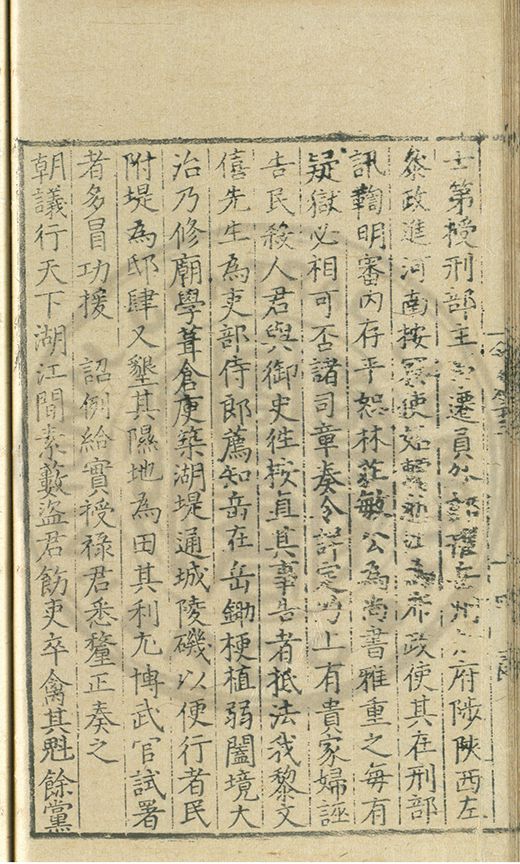 士第授刑部主事遷員外郎擢岳州知府陟陝西左
叅政進河南按察使茹浙江右布政使其在刑部
訊鞫明審內存平恕林莊敏公為尚書雅重之每有
疑獄必相可否諸司章奏令詳定乃上有貴家婦誣
告民殺人君與御史徃按直其事告者抵法我黎文
僖先生為吏部侍郎薦知岳在岳鋤梗植弱闔境大
治乃修廟學葺倉庾築湖堤通城陵磯以便行者民
附堤為邸肆又墾其隰地為田其利尤博武官試署
者多冒功援 詔例給實授祿君悉釐正奏之
朝議行天下湖江間素藪盜君飭吏卒禽其魁餘黨